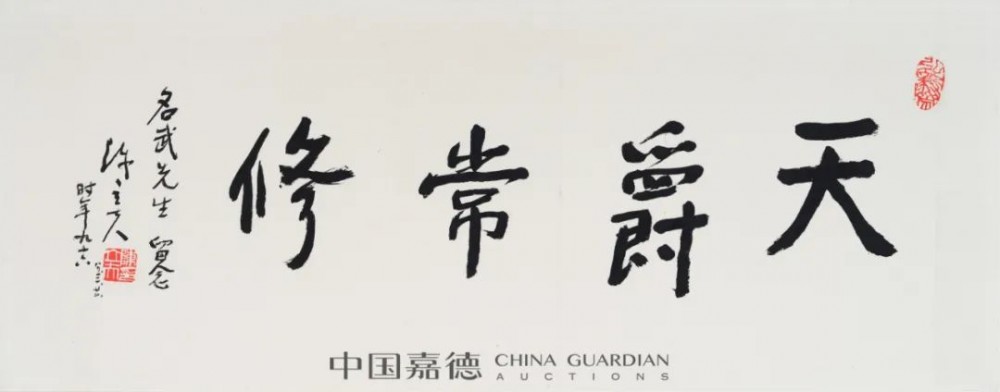 天爵常修
名武先生 留念
陈立夫
时年九六
中国嘉德 CHINA GUARDIAN
AUCTIONS